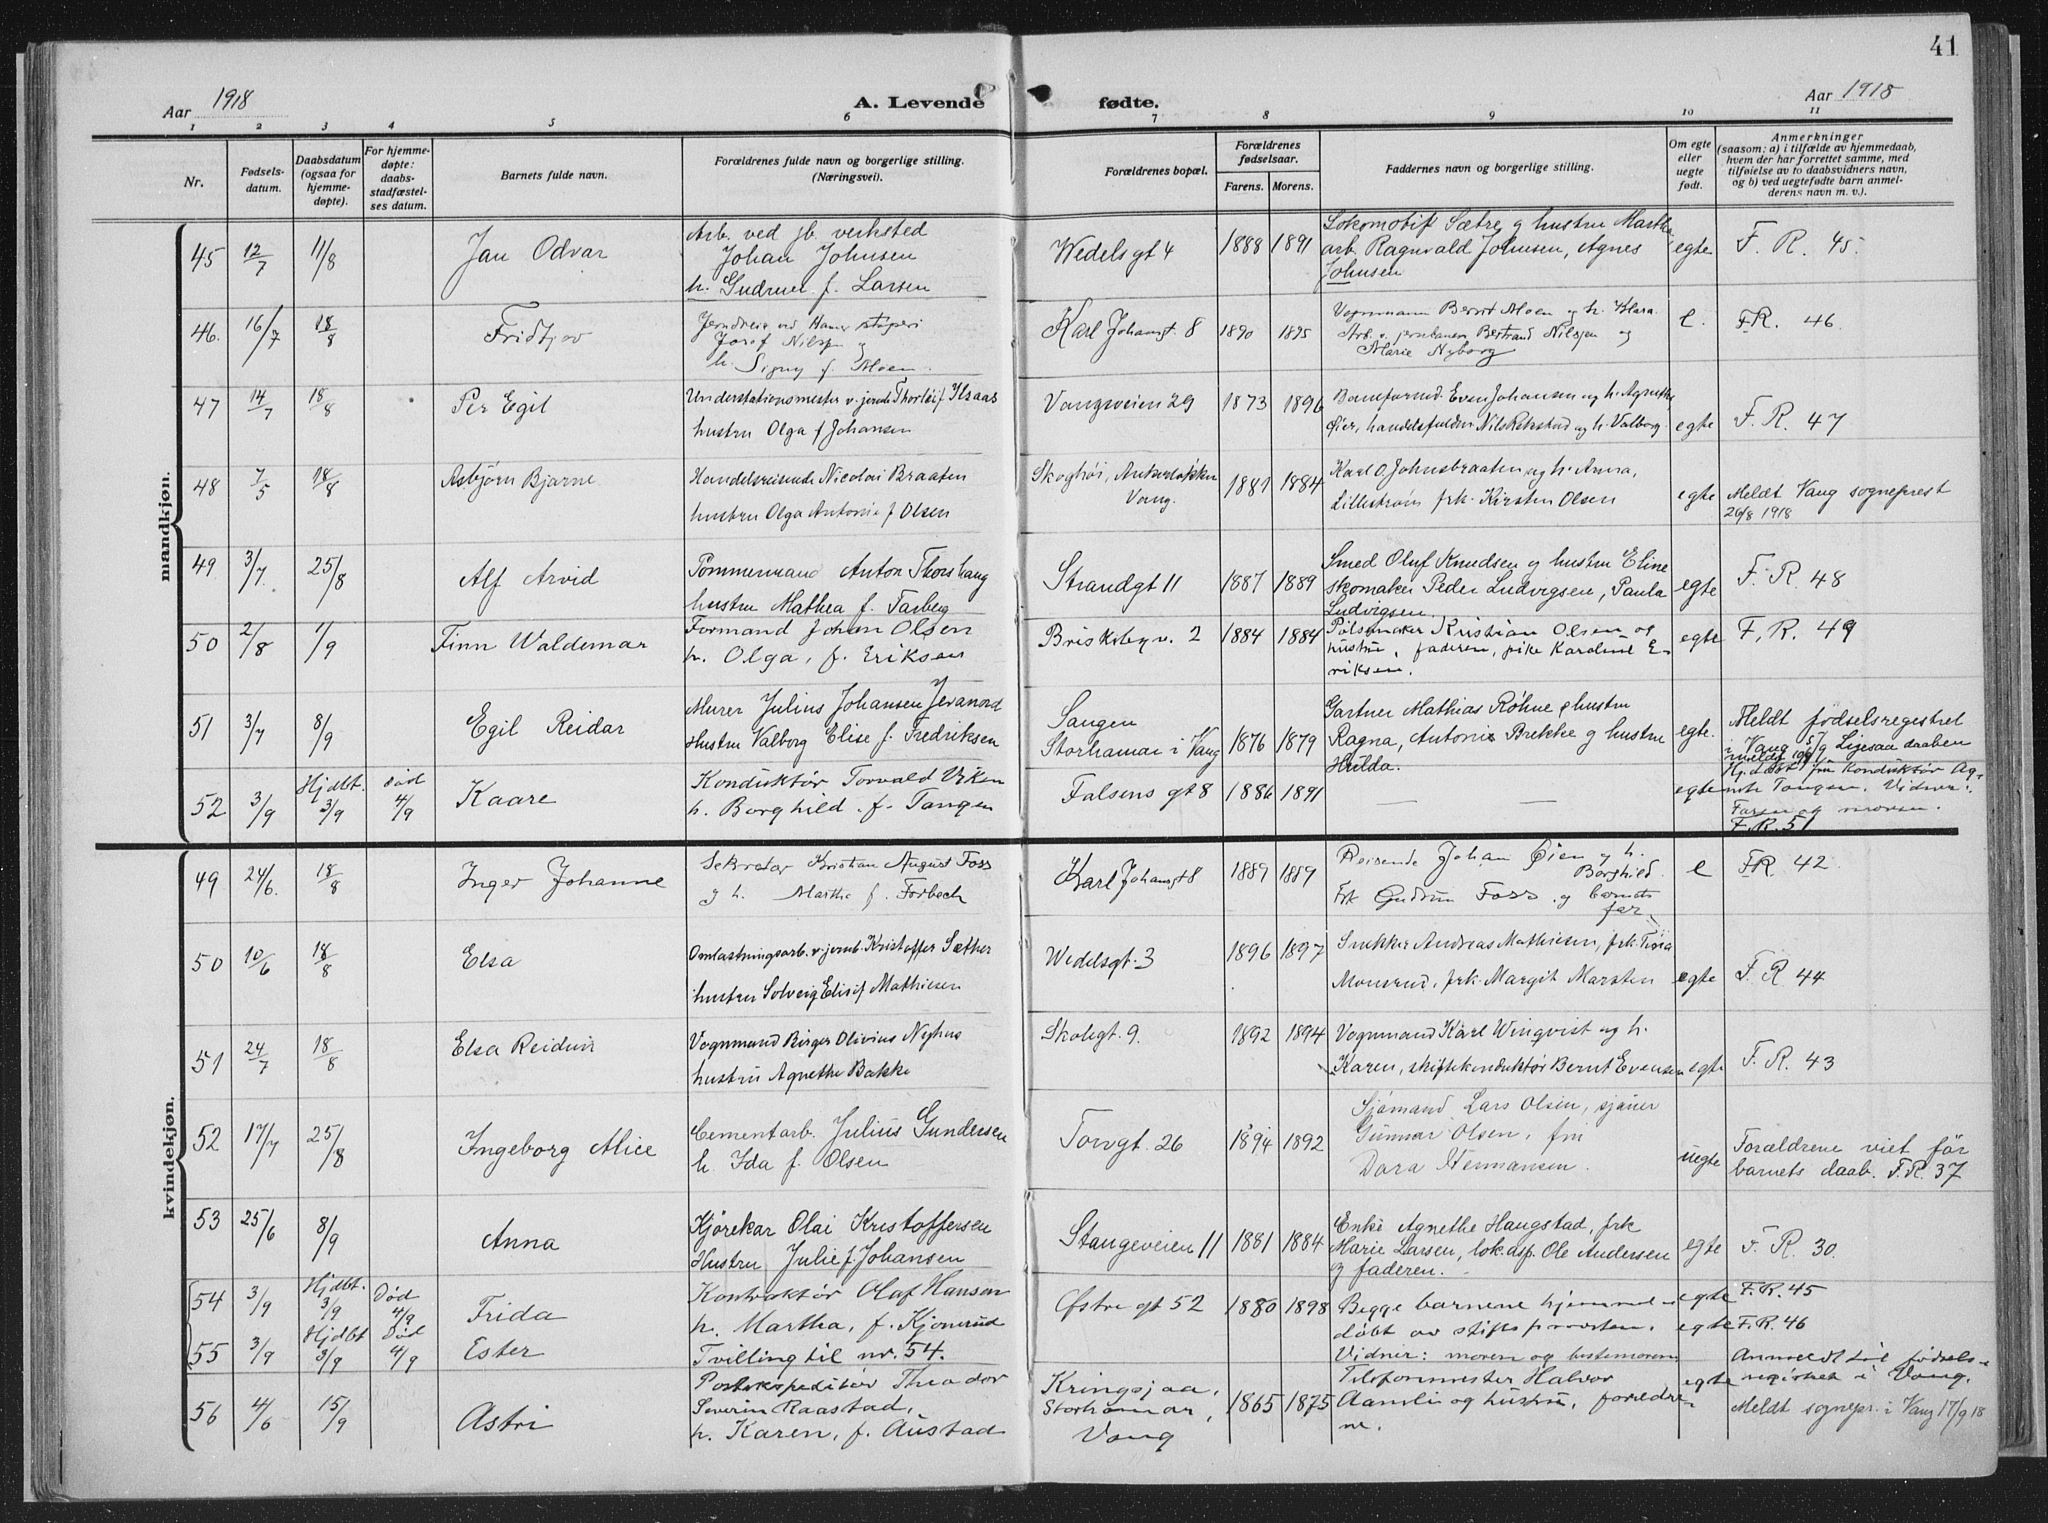 41
Aar 1918
A. Levende fødte.
Aar 1918
1 2 3 4 5 6 7 8 9 10 11
Nr.
Fødsels-
datum.
Daabsdatum
(ogsaa for
hjemme-
døpte).
For hjemme-
døpte:
daabs-
stadfæstel-
ses datum.
Barnets fulde navn.
Forældrenes fulde navn og borgerlige stilling.
(Næringsvei).
Forældrenes bopæl.
Forældrenes
fødselsaar.
Farens. Morens.
Faddernes navn og borgerlige stilling.
Om egte
eller
uegte
født.
Anmerkninger
(saasom: a) i tilfælde av hjemmedaab,
hvem der har forrettet samme, med
tilføielse av to daabsvidners navn,
og b) ved uegtefødte barn anmel-
derens navn m. v.).
mandkjøn.
45 12/7 11/8 Jan Odvar
Arb. ved jb. verksted
Johan Johnsen
h. Gudrun f. Larsen
Wedelsgt 4 1888 1891
Lokomotif Sætre og hustru Martha
arb. Ragnvald Johnsen, Agnes
Johnsen
egte F. R. 45.
46. 16/7 18/8 Fridtjov
Josef Nilsen og
h. Signy f. Moen.
Karl Johansgt. 8 1890 1895
Vognmann Bernt Moen og h. Klara
Arb. v. jernbanen Bertrand Nilsen og
Marie Nyborg
e. F.R. 46
47 14/7 18/8 Per Egil
Understationsmester v. jernb. Thorleif Ilsaas
hustru Olga f Johansen
Vangsveien 29 1873 1896
Baneformd. Even Johansen og h. Agnethe
Øier, handelsfuldm Nils Rekstad og h. Valborg.
egte F. R. 47
48 7/5 18/8 Asbjørn Bjarne
Handelsreisende Nicolai Braaten
hustru Olga Antonie f Olsen
Skoghøi, Ankerløkken
Vang. 1881 1884
Karl O. Johnsbraaten og h. Anna,
Lillestrøm frk. Kirsten Olsen
egte Meldt Vang sogneprest
26/8 1918
49 3/7 25/8 Alf Arvid
Tømmermand Anton Thorshaug
hustru Mathea f. Tasberg
Strandgt 11 1887 1889
Smed Oluf Knudsen og hustru Eline
skomaker Peder Ludvigsen, Paula
Ludvigsen.
egte F. R. 48
50 2/8 1/9 Finn Waldemar
Formand Johan Olsen
h. Olga, f. Eriksen
Briskebyv. 2 1884 1884
Pølsemaker Kristian Olsen og
hustru, faderen, pike Karoline E-
riksen.
egte F. R. 49
51 3/7 8/9 Egil Reidar
Murer Julius Johansen Jevanord
Hustru Valborg Elise f. Fredriksen
Sangen
Storhamar i Vang 1876 1879
Gartner Mathias Röhne og hustru
Ragna, Antonis Brekke og hustru
Hulda.
egte. Meldt fødselsregistret
i Vang 5/9 Ligesaa daaben
52 3/9 Hjdbt. 3/9 død 4/9 Kaare
Konduktør Torvald Viken
h. Borghild f. Tangen
Falsens gt 8 1886 1891
— —
egte Hj. døbt fru Konduktør Ag-
nete Tangen. Vidner:
Faren og moren.
F. R. 51
kvindekjøn.
49 24/6. 18/8 Inger Johanne
Sekretær Kristian August Foss
og h. Martha f. Forbech
Karl Johansgt 8 1889 1889
Reisende Johan Øien og h.
Borghild.
Frk Gudrun Foss og barnets
far.
e F.R. 42
50 10/6 18/8 Elsa
Omlastningsarb. v. jernb. Kristoffer Sæther
hustru Solveig Elisif Mathiesen
Wedelsgt. 3 1896 1897
Snekker Andreas Mathiesen, frk. Tina
Monsrud, frk. Margit Marsten
egte F. R 44
51 24/7 18/8 Elsa Reidun
Vognmand Birger Olivius Nyhus
hustru Agnethe Bakke
Skolegt. 9. 1892 1894
Vognmand Karl Winqvist og h.
Karen, skiftekonduktør Bernt Evensen
egte F. R. 43
52 17/7 25/8 Ingeborg Alice
Cementarb. Julius Gundersen
h. Ida f. Olsen
Torvgt. 26 1894 1892
Sjømand Lars Olsen, sjauer
Gunnar Olsen, frk
Dara Hermansen.
uegte Forældrene viet før
barnets daab. F. R. 37
53 25/6 8/9 Anna
Kjørekar Olai Kristoffersen
Hustru Julie f. Johansen
Stangeveien 11 1881 1884
Enke Agnethe Haugstad, frk
Marie Larsen, lok.dsp. Ole Andersen
og faderen.
egte F. R. 30.
54 3/9 Hjdbt. 3/9 Død 4/9 Frida
Kontraktør Olaf Hansen
h. Martha, f. Kjonerud
Østre gt 52 1880 1898
Begge barnene hjemme-
døbt av stiftsprovsten.
egte F. R. 45
55 3/9 Hjdbt 3/9 Død 4/9 Ester
Tvilling til nr. 54.
Vidner: moren og bestemoren
egte F. R. 46
56 4/6 15/9 Astri
Postekspeditør Theodor
Severin Raastad,
h. Karen, f. Austad
Kringsjaa,
Storhamar,
Vang 1865 1875
Telefonmester Halvor
Aamlie og hustru, forældre-
ne.
egte Anmeldt til fødsels-
registret i Vang.
Meldt sognepr. i Vang 17/9 18